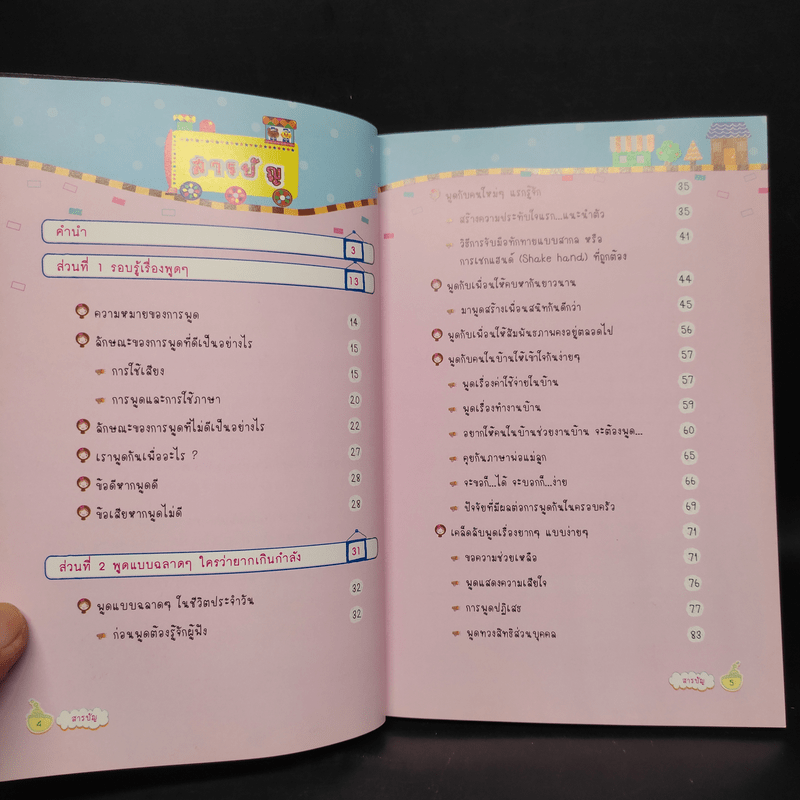 สารบัญ
คำนำ 3
ส่วนที่ 1 รอบรู้เรื่องพูดๆ 13
ความหมายของการพูด 14
ลักษณะของการพูดที่ดีเป็นอย่างไร 15
การใช้เสียง 15
การพูดและการใช้ภาษา 20
ลักษณะของการพูดที่ไม่ดีเป็นอย่างไร 22
เราพูดกันเพื่ออะไร ? 27
ข้อดีหากพูดดี 28
ข้อเสียหากพูดไม่ดี 28
ส่วนที่ 2 พูดแบบฉลาดๆ ใครว่ายากเกินกำลัง 31
พูดแบบฉลาดๆ ในชีวิตประจำวัน 32
ก่อนพูดต้องรู้จักผู้ฟัง 32
4 สารบัญ
พูดกับคนใหม่ๆ แรกรู้จัก 35
สร้างความประทับใจแรก...แนะนำตัว 35
วิธีการจับมือทักทายแบบสากล หรือ 41
การเชกแฮนด์ (Shake hand) ที่ถูกต้อง
พูดกับเพื่อนให้คบหากันยาวนาน 44
มาพูดสร้างเพื่อนสนิทกันดีกว่า 45
พูดกับเพื่อนให้สัมพันธภาพคงอยู่ตลอดไป 56
พูดกับคนในบ้านให้เข้าใจกันง่ายๆ 57
พูดเรื่องค่าใช้จ่ายในบ้าน 57
พูดเรื่องทำงานบ้าน 59
อยากให้คนในบ้านช่วยงานบ้าน จะต้องพูด... 60
คุยกันภาษาพ่อแม่ลูก 65
จะขอก็...ได้ จะบอกก็...ง่าย 66
ปัจจัยที่มีผลต่อการพูดกันในครอบครัว 69
เคล็ดลับพูดเรื่องยากๆ แบบง่ายๆ 71
ขอความช่วยเหลือ 71
พูดแสดงความเสียใจ 76
การพูดปฏิเสธ 77
พูดทวงสิทธิส่วนบุคคล 83
สารบัญ 5